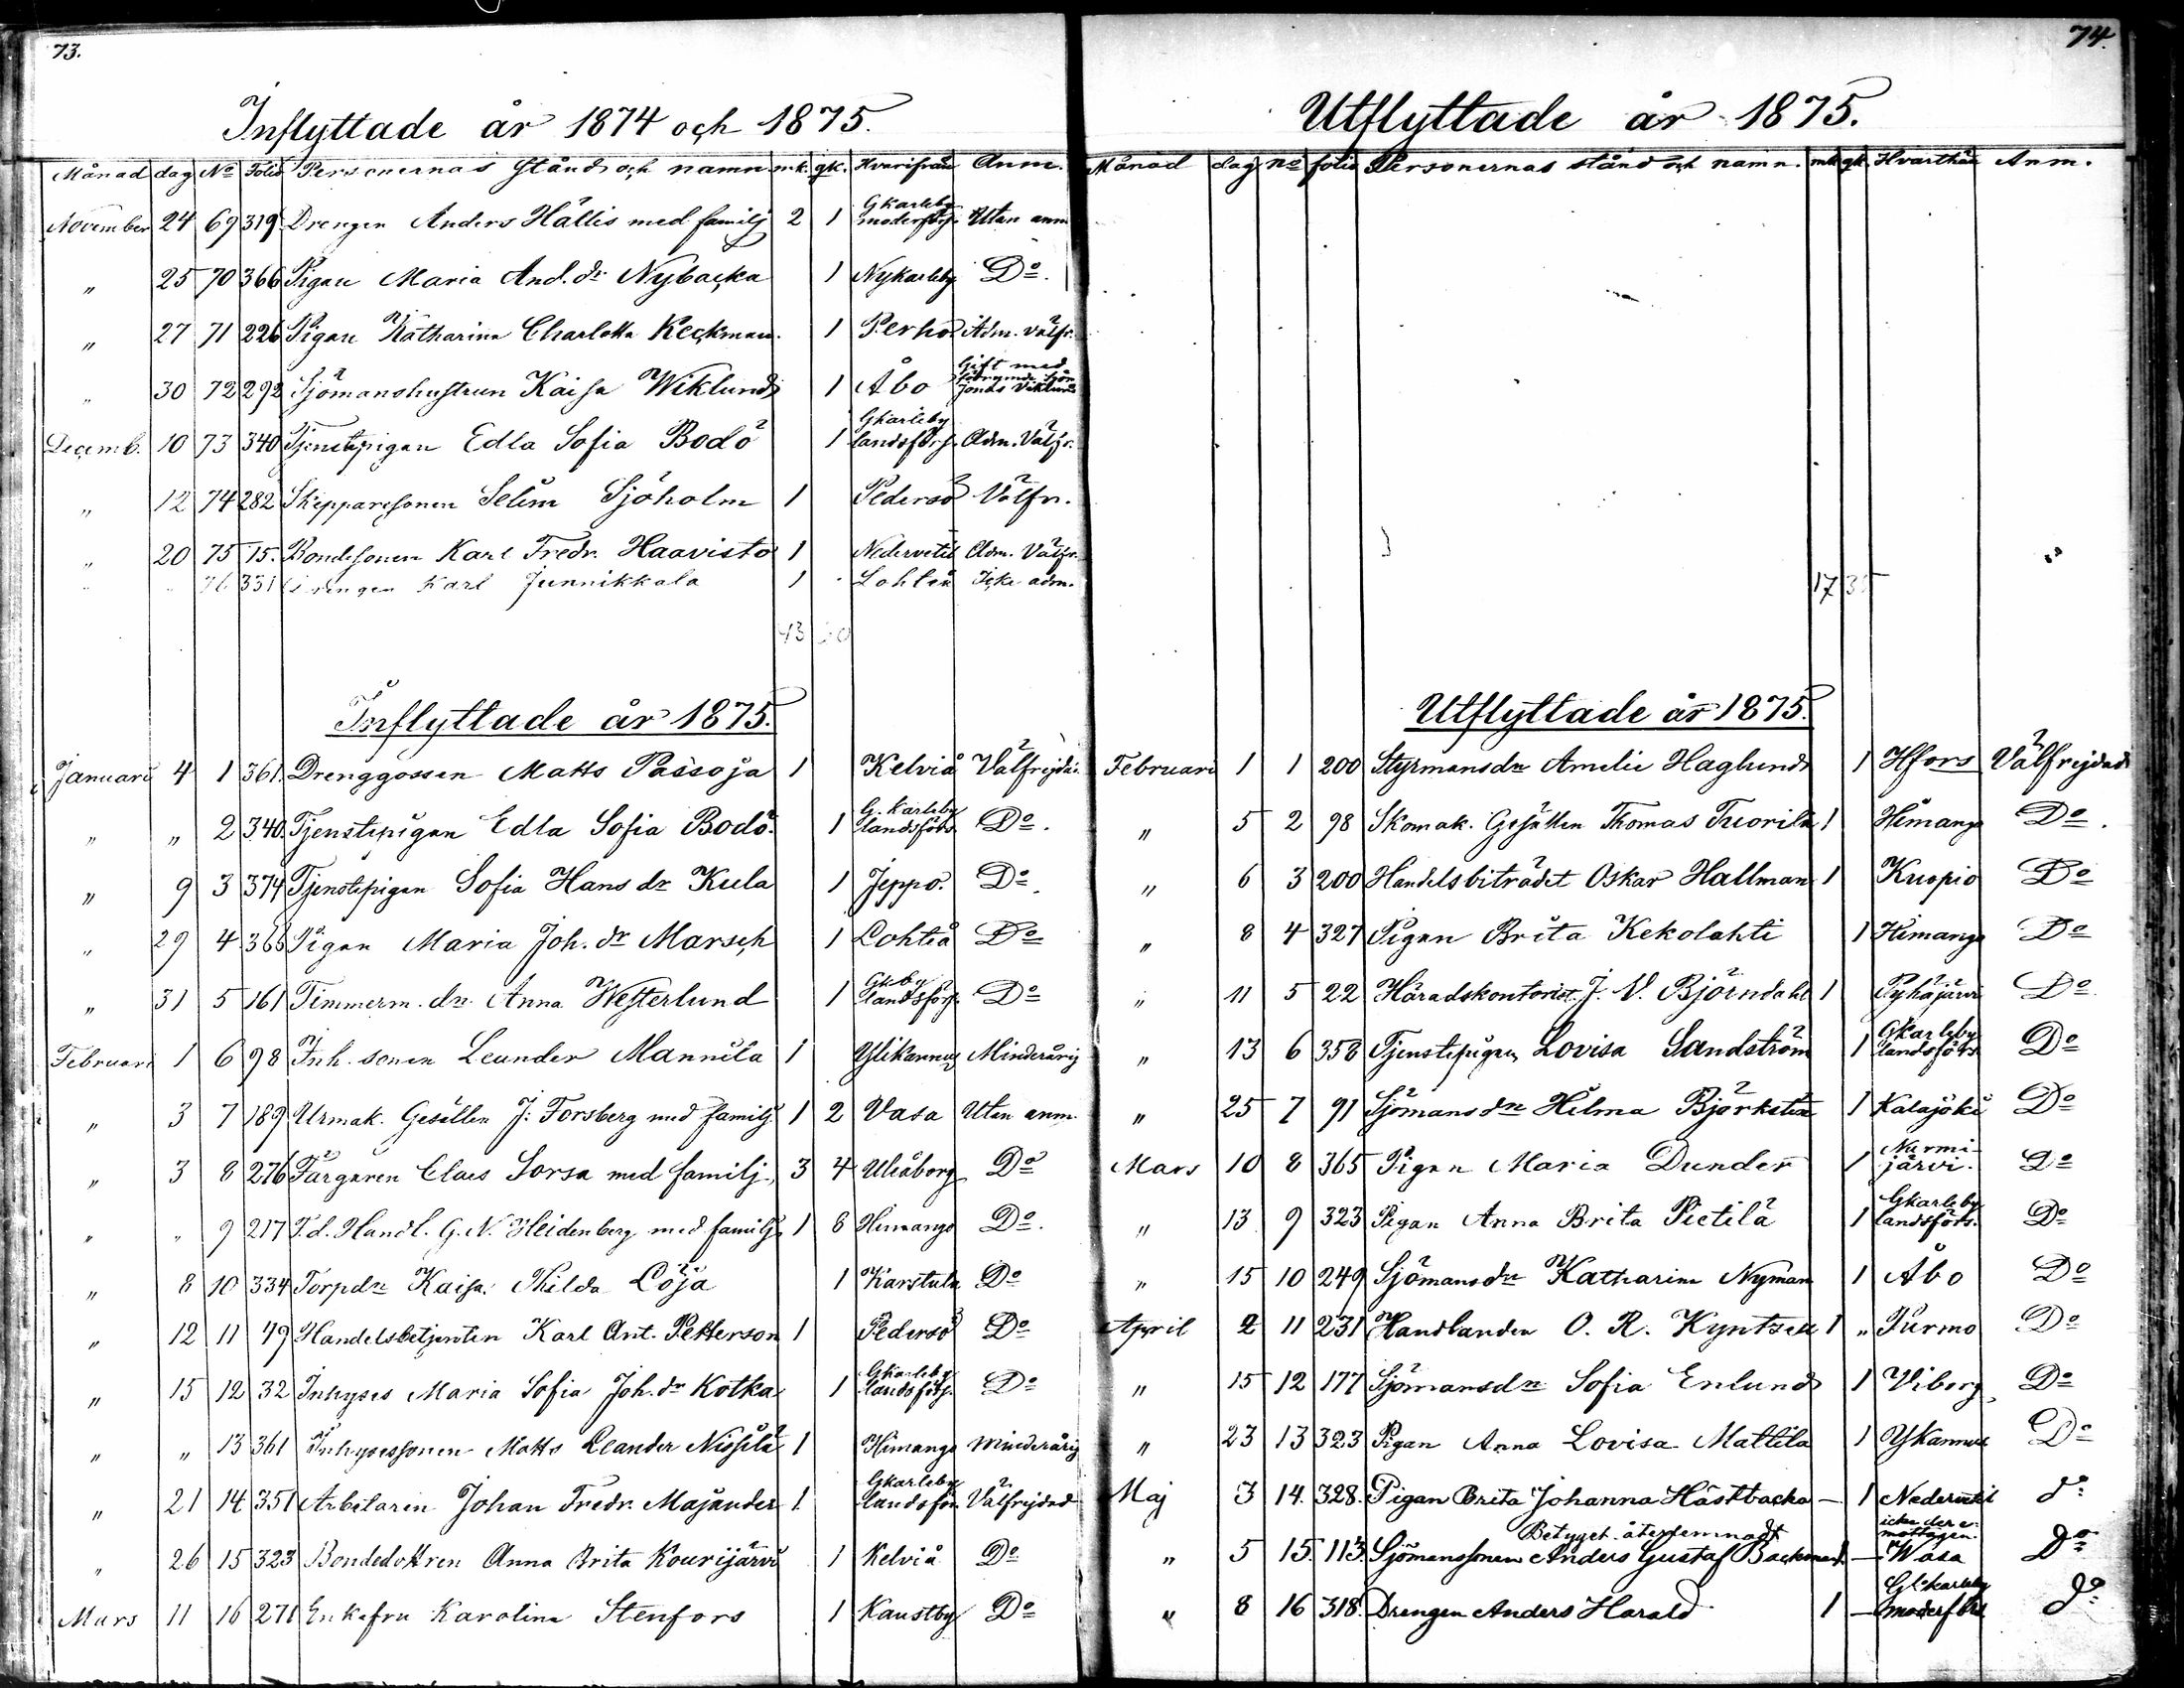 73.
Inflyttade år 1874 och 1875.
Månad dag No Folio Personernas stånd och namn mk. qk. Hvarifrån Anm.
November 24 69 319 Drengen Anders Hällis med familj 2 1 Gkarleby moderförs. Utan anm
" 25 70 366 Pigan Maria And. dr Nybacka 1 Nykarleby Do.
" 27 71 226 Pigan Katharina Charlotta Keckman. 1 Perho Adm. välfr.
" 30 72 292 Sjömanshustrun Kaisa Wiklund 1 Åbo Gift med Jonas Viklund
Decemb. 10 73 340 Tjenstepigan Edla Sofia Bodö 1 Gkarleby landsförs. Adm. Välfr.
" 12 74 282 Skepparesonen Selim Sjöholm 1 Pedersö Välfr.
" 20 75 15. Bondesonen Karl Fredr. Haavisto 1 Nedervetil Adm. Välfr.
" " 76 331 Drengen Karl Junnikkala 1 Lohteå Icke adm.
43
Inflyttade år 1875.
Januari 4 1 361. Drenggossen Matts Passoja 1 Kelviå Välfrejdad.
" " 2 340. Tjenstepigan Edla Sofia Bodö. 1 G. Karleby landsförs Do.
" 9 3 374 Tjenstepigan Sofia Hans dr Kula 1 Jeppo. Do.
" 29 4 366 Pigan Maria Joh. dr Marsch 1 Lohteå Do
" 31 5 161 Timmerm. dr. Anna Westerlund 1 Gkby landsförs. Do
Februari 1 6 98 Inh. sonen Leander Mannila 1 Ylikannus Minderårig
" 3 7 189 Urmak. Gesällen J. Forsberg med familj. 1 2 Vasa Utan anm.
" 3 8 276 Färgaren Claes Sorsa med familj. 3 4 Uleåborg Do
" " 9 217 F.d. Handl. G. N. Heidenberg med familj 1 6 Himango Do.
" 8 10 334 Torpdr Kaisa Thilda Löja 1 Karstula Do
" 12 11 49 Handelsbetjenten Karl Ant. Petterson 1 Pedersö Do
" 15 12 32 Inhyses Maria Sofia Joh. dr Kotka 1 Gkarleby landsförs. Do
" " 13 361 Inhysessonen Matts Leander Nissilä 1 Himango Minderårig
" 21 14 351 Arbetaren Johan Fredr. Majander 1. Gkarleby landsför. Välfrejdad
" 26 15 323 Bondedottren Anna Brita Kourijärvi 1 Kelviå Do
Mars 11 16 271 Enkefru Karolina Stenfors 1 Kaustby Do
74.
Utflyttade år 1875.
Månad dag No folio Personernas stånd och namn. mk qk. Hvarthän Anm.
17
Utflyttade år 1875.
Februari 1 1 200 Styrmansdr Amelie Haglund 1 Hfors Välfrejdad
" 5 2 98 Skomak. Gesällen Thomas Tuorila 1 Himango Do.
" 6 3 200 Handelsbiträdet Oskar Hallman 1 Kuopio Do
" 8 4 327 Pigan Brita Kekolahti 1 Himango Do
" 11 5 22 Häradskontorist. J. V. Björndahl 1 Pyhäjärvi Do
" 13 6 358 Tjenstepigan Lovisa Sandström 1 Gkarleby landsförs Do
" 25 7 91 Sjömansdr Hilma Björksten 1 Kalajoki Do
Mars 10 8 365 Pigan Maria Dunder 1 Nurmijärvi. Do
" 13 9 323 Pigan Anna Brita Pietilä 1 Gkarleby landsförs. Do
" 15 10 249 Sjömansdr Katharina Nyman 1 Åbo Do
April 2 11 231 Handlanden O. R. Kyntsell 1 " Purmo Do
" 15 12 177 Sjömansdr Sofia Enlund 1 Viborg Do
" 23 13 323 Pigan Anna Lovisa Mattila 1 Ykannus Do
Maj 3 14. 328. Pigan Brita Johanna Hästbacka — 1 Nedervetil do
Betyget återlemnadt icke der emottagen.
" 5 15. 113. Sjömanssonen Anders Gustaf Backman 1. — Wasa Do
" 8 16 318. Drengen Anders Harald 1 — Glkarleby moderförs do